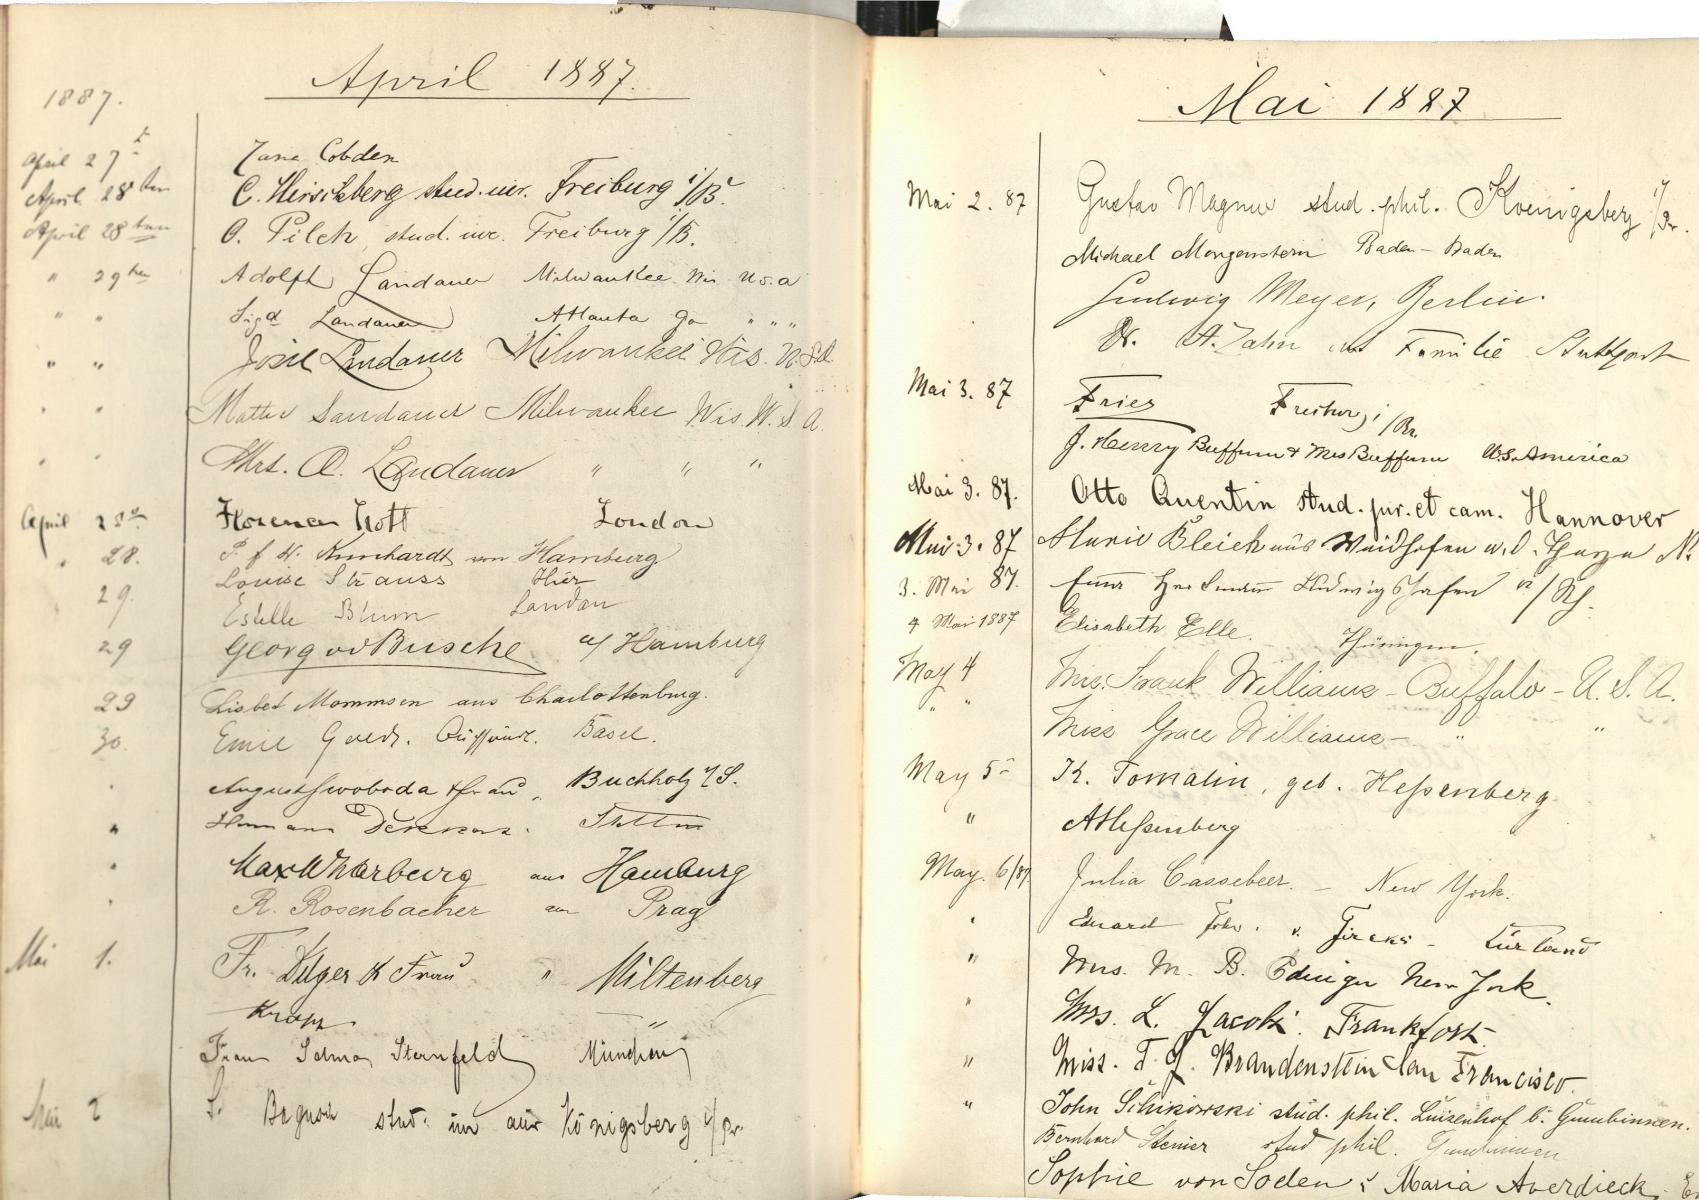 April 1887.
1887.
April 27t Jane Cobden
April 28ten C. Hirschberg stud. iur. Freiburg i/B.
April 28ten O. Pilch, stud. iur. Freiburg i/B.
" 29ten Adolph Landauer Milwaukee Wis U.S.a
" " Sigd Landauer Atlanta Ga " " "
" " Landauer Milwaukee Wis. U.S.A.
" " Landauer Milwaukee Wis. U.S.A.
" " Mrs. A. Landauer " " "
April 28th Florence Nott London
" 28. von Hamburg
29. Louise Strauss Hier
Estelle Blum Landau
29 Georg v d Busche a/ Hamburg
29 Lisbet Mommsen aus Charlottenburg.
30. Emil Basel.
August Swoboda & Frau, Buchholz i/S.
" Hermann Stettin
" Max Warburg aus Hamburg
" R. Rosenbacher aus Prag
Mai 1. Fr. Dilger & Frau " Miltenberg
Krapp "
Frau Selma Sternfeld München
Mai 2 stud. iur aus Königsberg i/Pr.
Mai 1887
Mai 2. 87 Gustav Magnus stud. phil. Koenigsberg i/Pr.
Michael Morgenstern Baden-Baden
Ludwig Meyer, Berlin.
Dr. A. Zahn und Familie Stuttgart
Mai 3. 87 Fries Freiburg i/Br.
J. Henry Buffum & Mrs Buffum U.S. America
Mai 3. 87. Otto Quentin stud. jur. et cam. Hannover
Mai 3. 87 Marie Bleich aus Waidhofen a. d. Thaya N.
3. Mai 87. Ludwigshafen a/Rh.
4 Mai 1887 Elisabeth Elle. Thüringen.
May 4 Mrs. Frank Williams - Buffalo - U.S.A.
" " Miss Grace Williams - " "
May 5 - K. Tomalin, geb. Heßenberg
" A Heßenberg
May. 6/87 Julia Cassebeer. - New York.
" Eduard Frhr. v. Fircks - Kurland
" Mrs. M. B. Edinger New York.
" Mrs. L. Jacobi. Frankfort.
" Miss. F. J. Brandenstein San Francisco.
" John Schikowski stud. phil. Luisenhof b. Gumbinnen.
Bernhard stud phil. Gumbinnen
Sophie von Soden; Maria Averdieck.